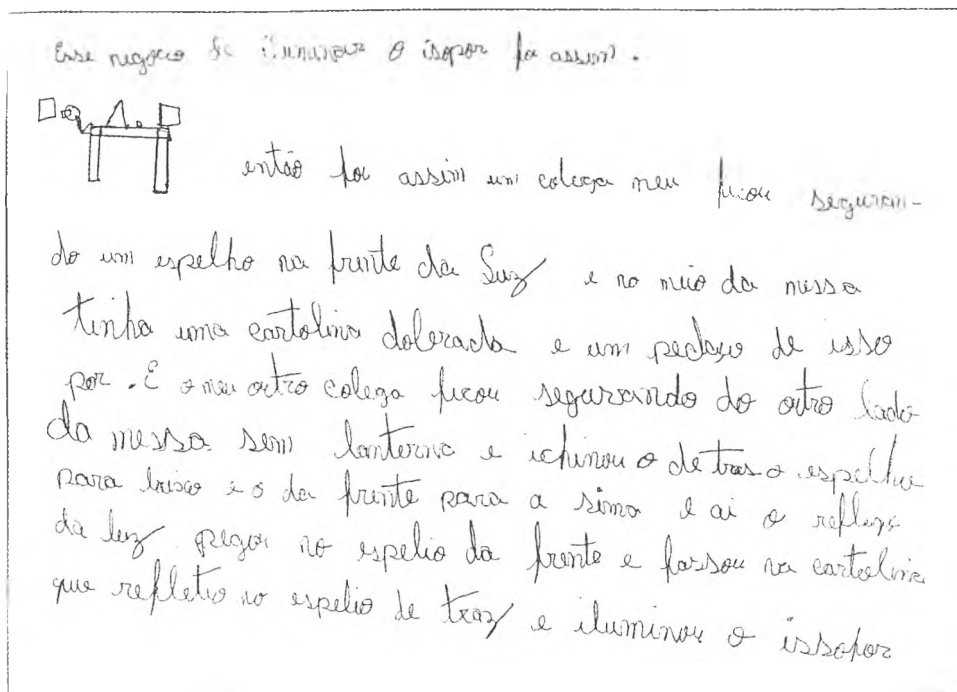 Esse negocio de iluminar o isopor foi assim.
então foi assim um colega meu ficou seguran-
do um espelho na frente da Luz e no meio da messa
tinha uma cartolina dobrada e um pedaço de isso
por. E o meu outro colega ficou segurando do outro lado
da messa sem lanterna e ichinou o de tras o espelho
para baixo e o da frente para a sima e ai o reflexo
da luz pegou no espelio da frente e passou na cartolina
que refletio no espelio de traz e iluminou o issopor